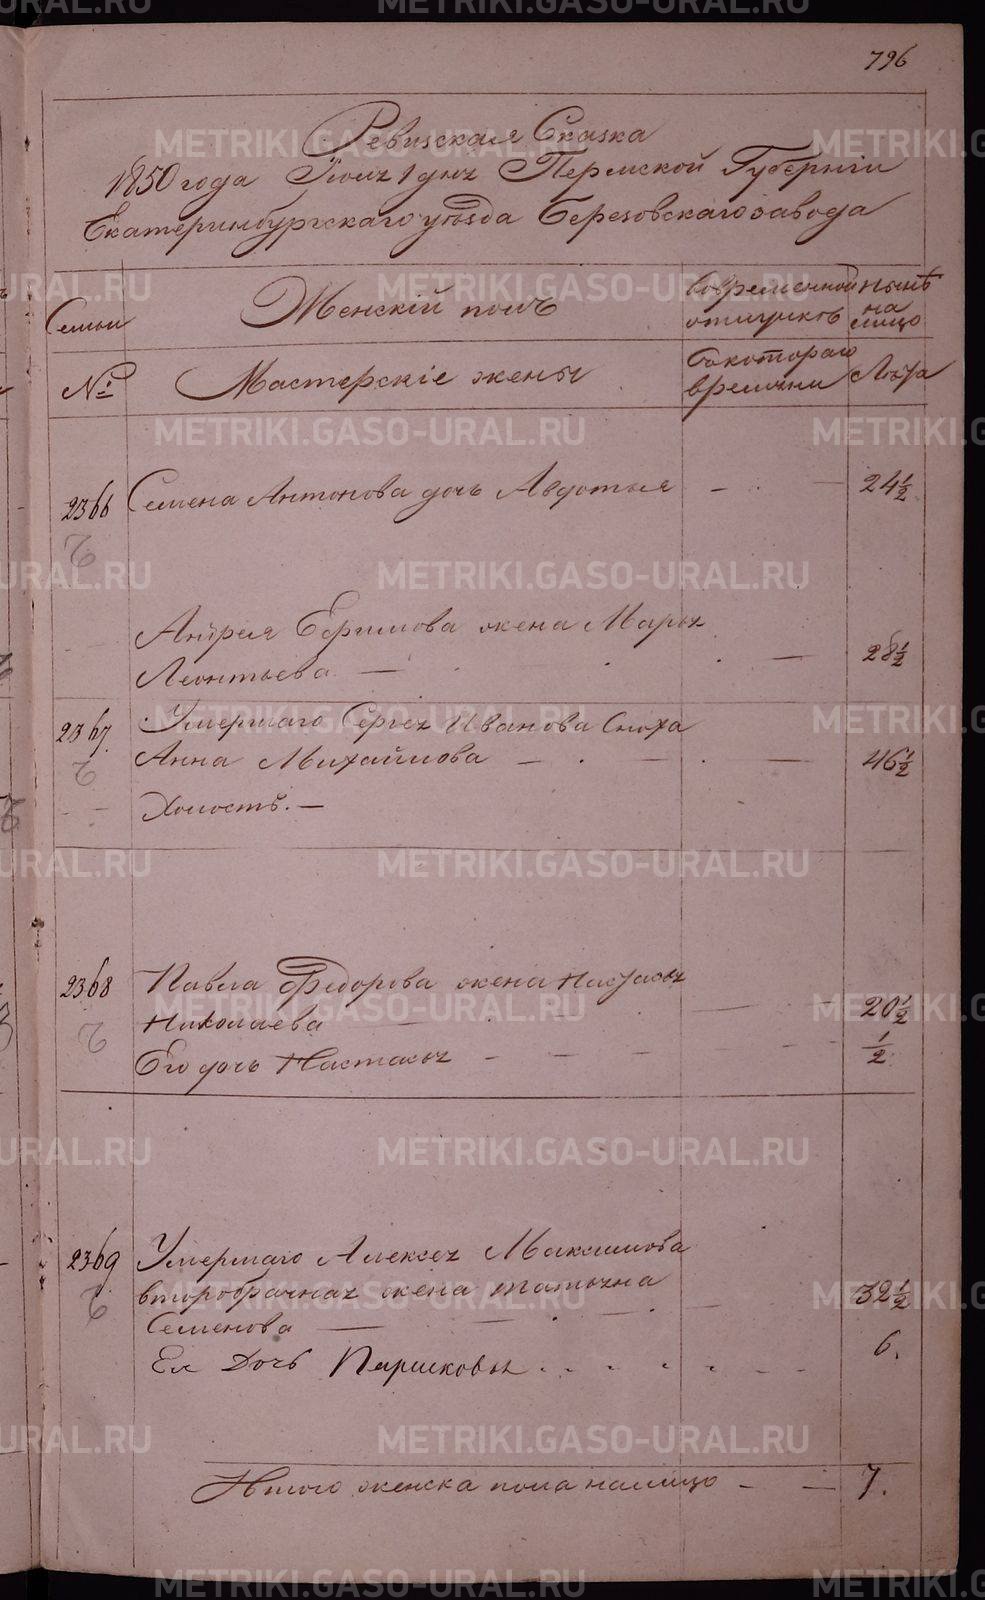 796
Ревизская Сказка
1850 года Июня 1 дня Пермской Губернiи
Екатеринбургскаго уѣзда Березовскаго завода
Семьи
Женскiй полъ
Во временной отлучкѣ
нынѣ на лицо
№
Мастерскiе жены
Съ котораго времяни
Лѣта
2366
Семена Антонова дочь Авдотья — 24½
Андрея Ефимова жена Марья
Леонтьева — 28½
2367
Умершаго Сергея Иванова Сноха
Анна Михайлова — 46½
Холостъ. —
2368
Павла Федорова жена Настасья
Николаева — 20½
Его дочь Настасья — ½
2369
Умершаго Алексея Максимова
второбрачная жена Татьяна
Семенова — 32½
Ея Дочь Парасковья 6.
Итого женска пола налицо — 7.
METRIKI.GASO-URAL.RU